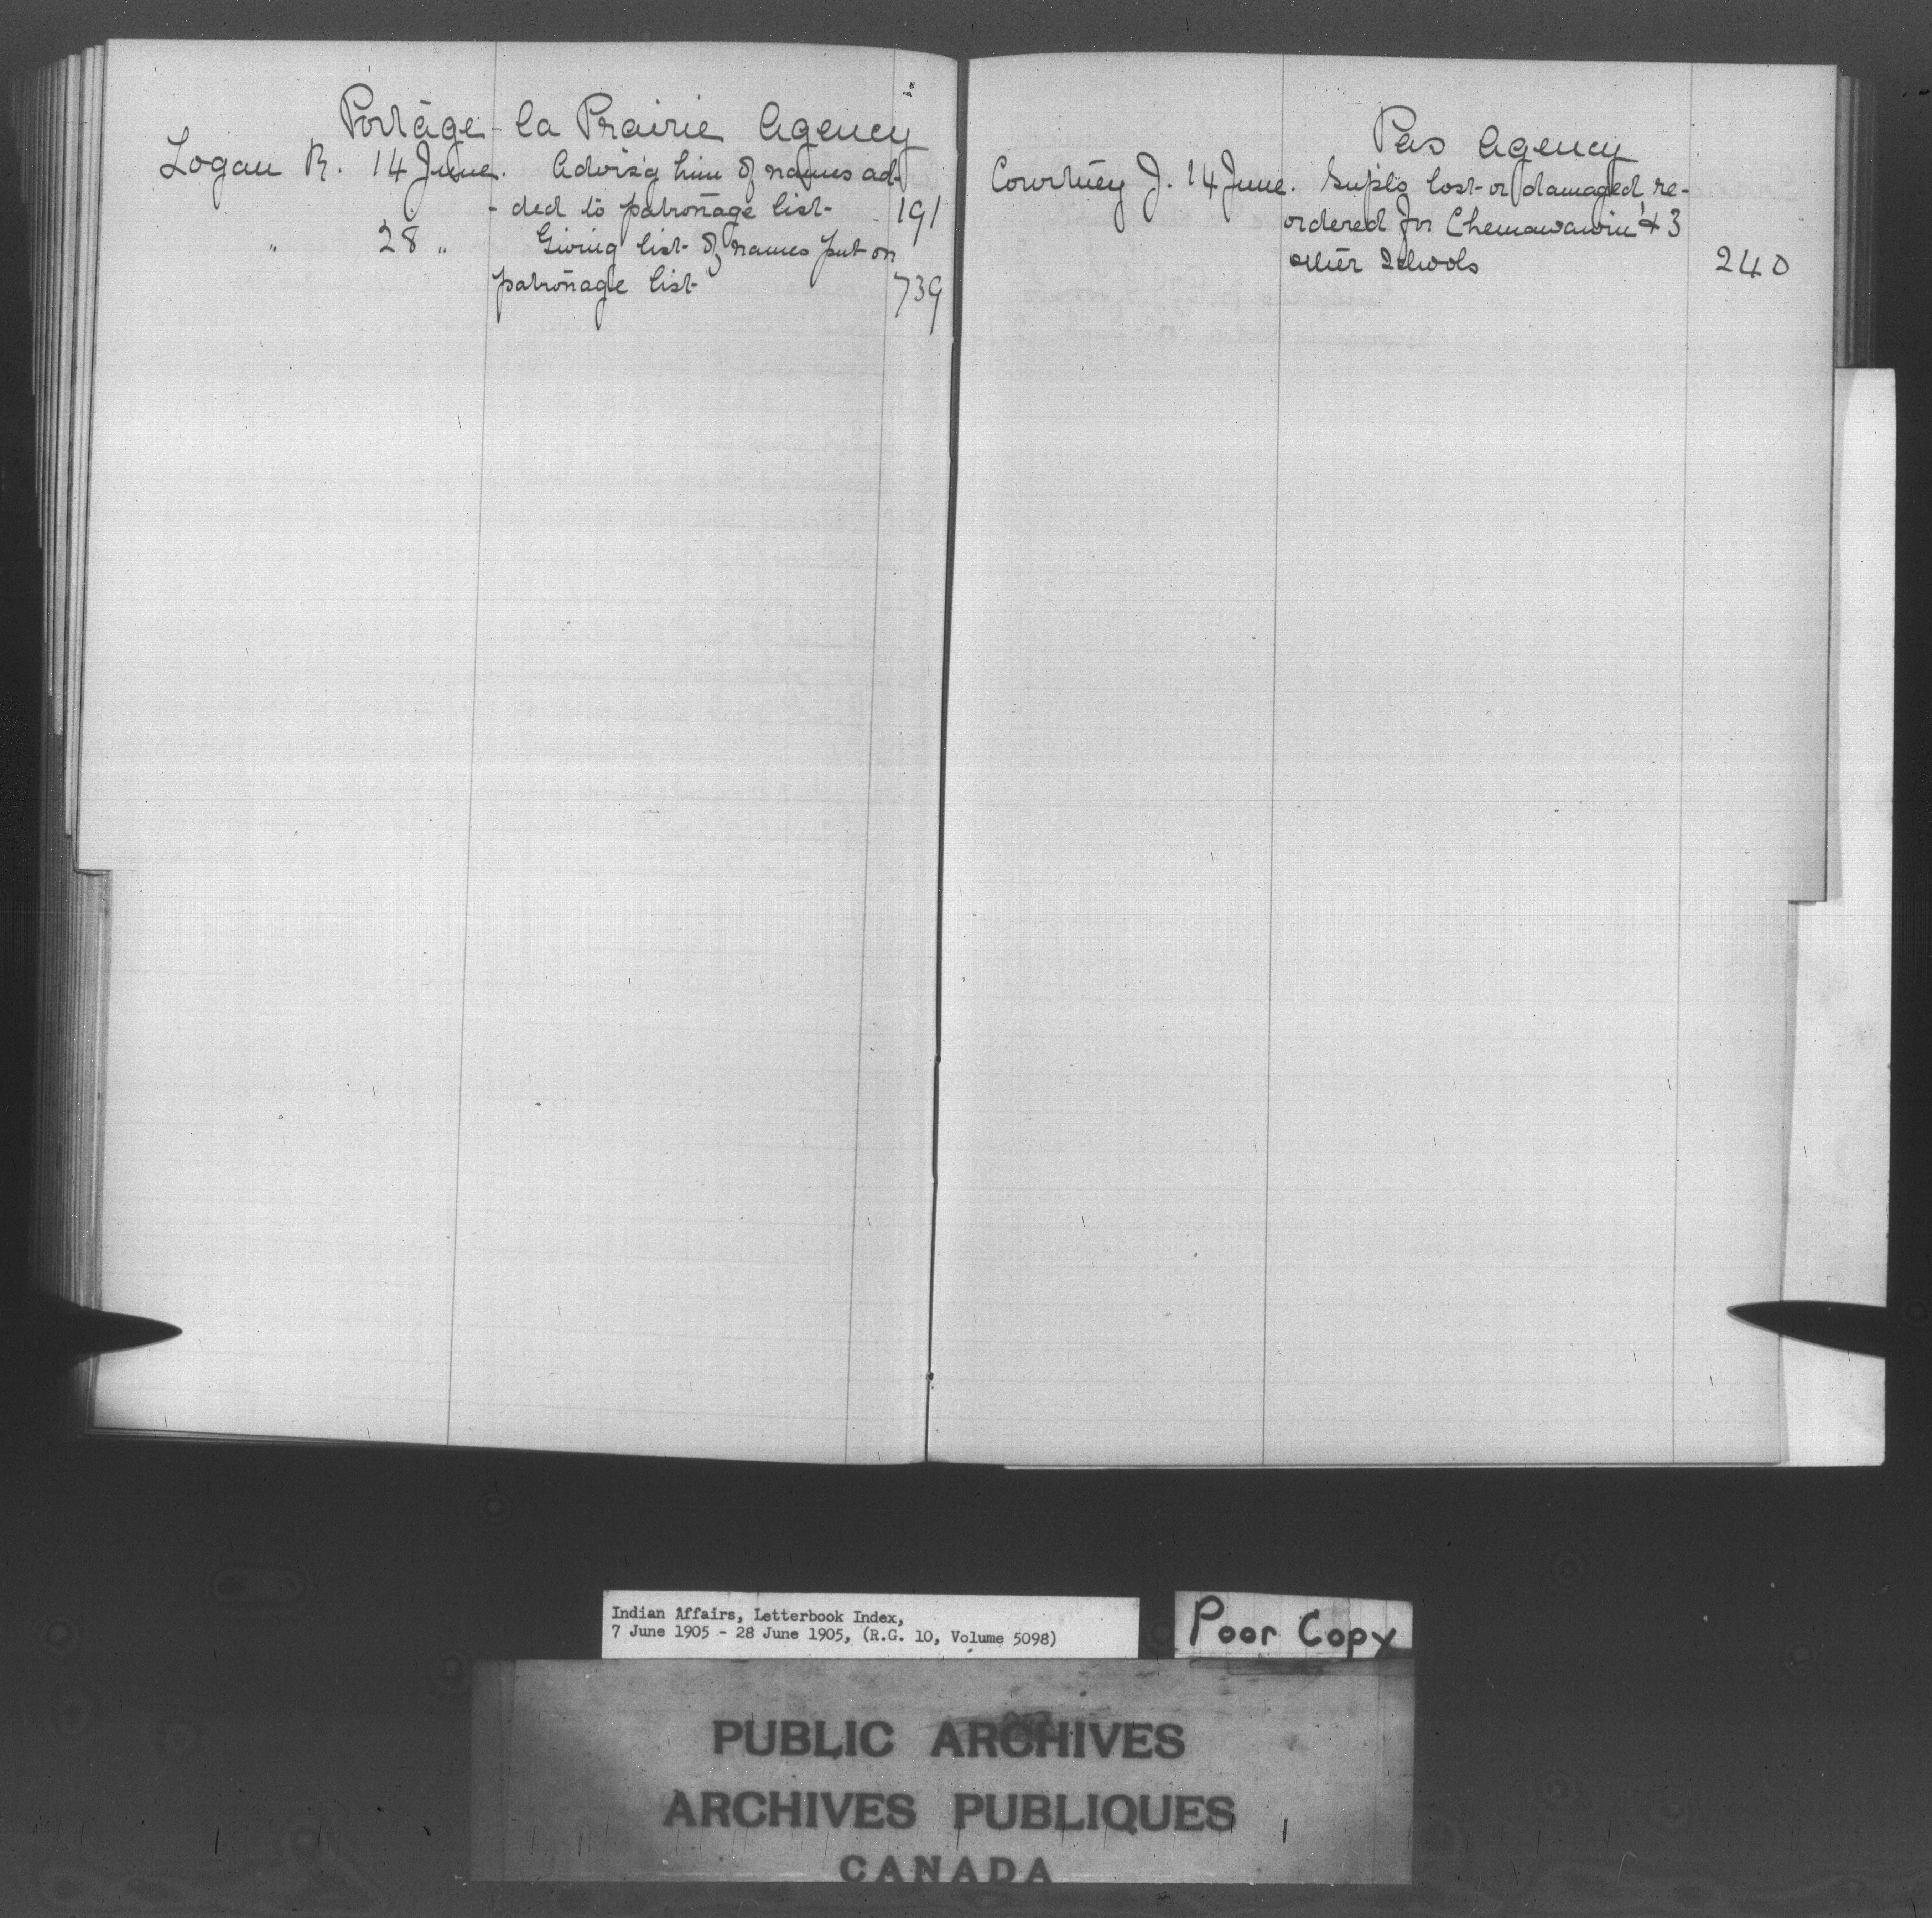 Portage-la Prairie Agency
Logan R. 14 June. Advis'g him of names ad-
-ded to patronage list- 191
" 28 " Giving list- of names put on
patronage list- 739
Pas Agency
Courtney J. 14 June. Supls lost-or damaged, re-
ordered for Chemawawin & 3
other Schools 240
Indian Affairs, Letterbook Index,
7 June 1905 - 28 June 1905, (R.G. 10, Volume 5098)
Poor Copy
PUBLIC ARCHIVES
ARCHIVES PUBLIQUES
CANADA